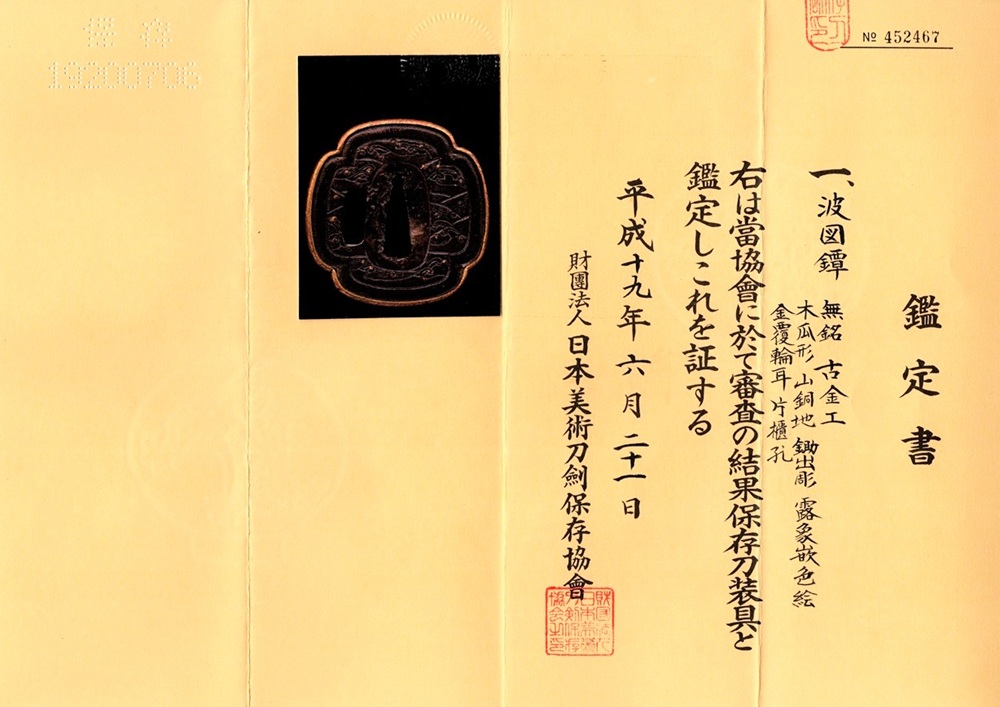 鑑定書
№ 452467
一、波図鐔 無銘 古金工
木瓜形 山銅地 鋤出彫 露象嵌色絵
金覆輪耳 片櫃孔
右は當協會に於て審査の結果保存刀装具と
鑑定しこれを証する
平成十九年六月二十一日
財團法人日本美術刀劍保存協會
保存
19200706